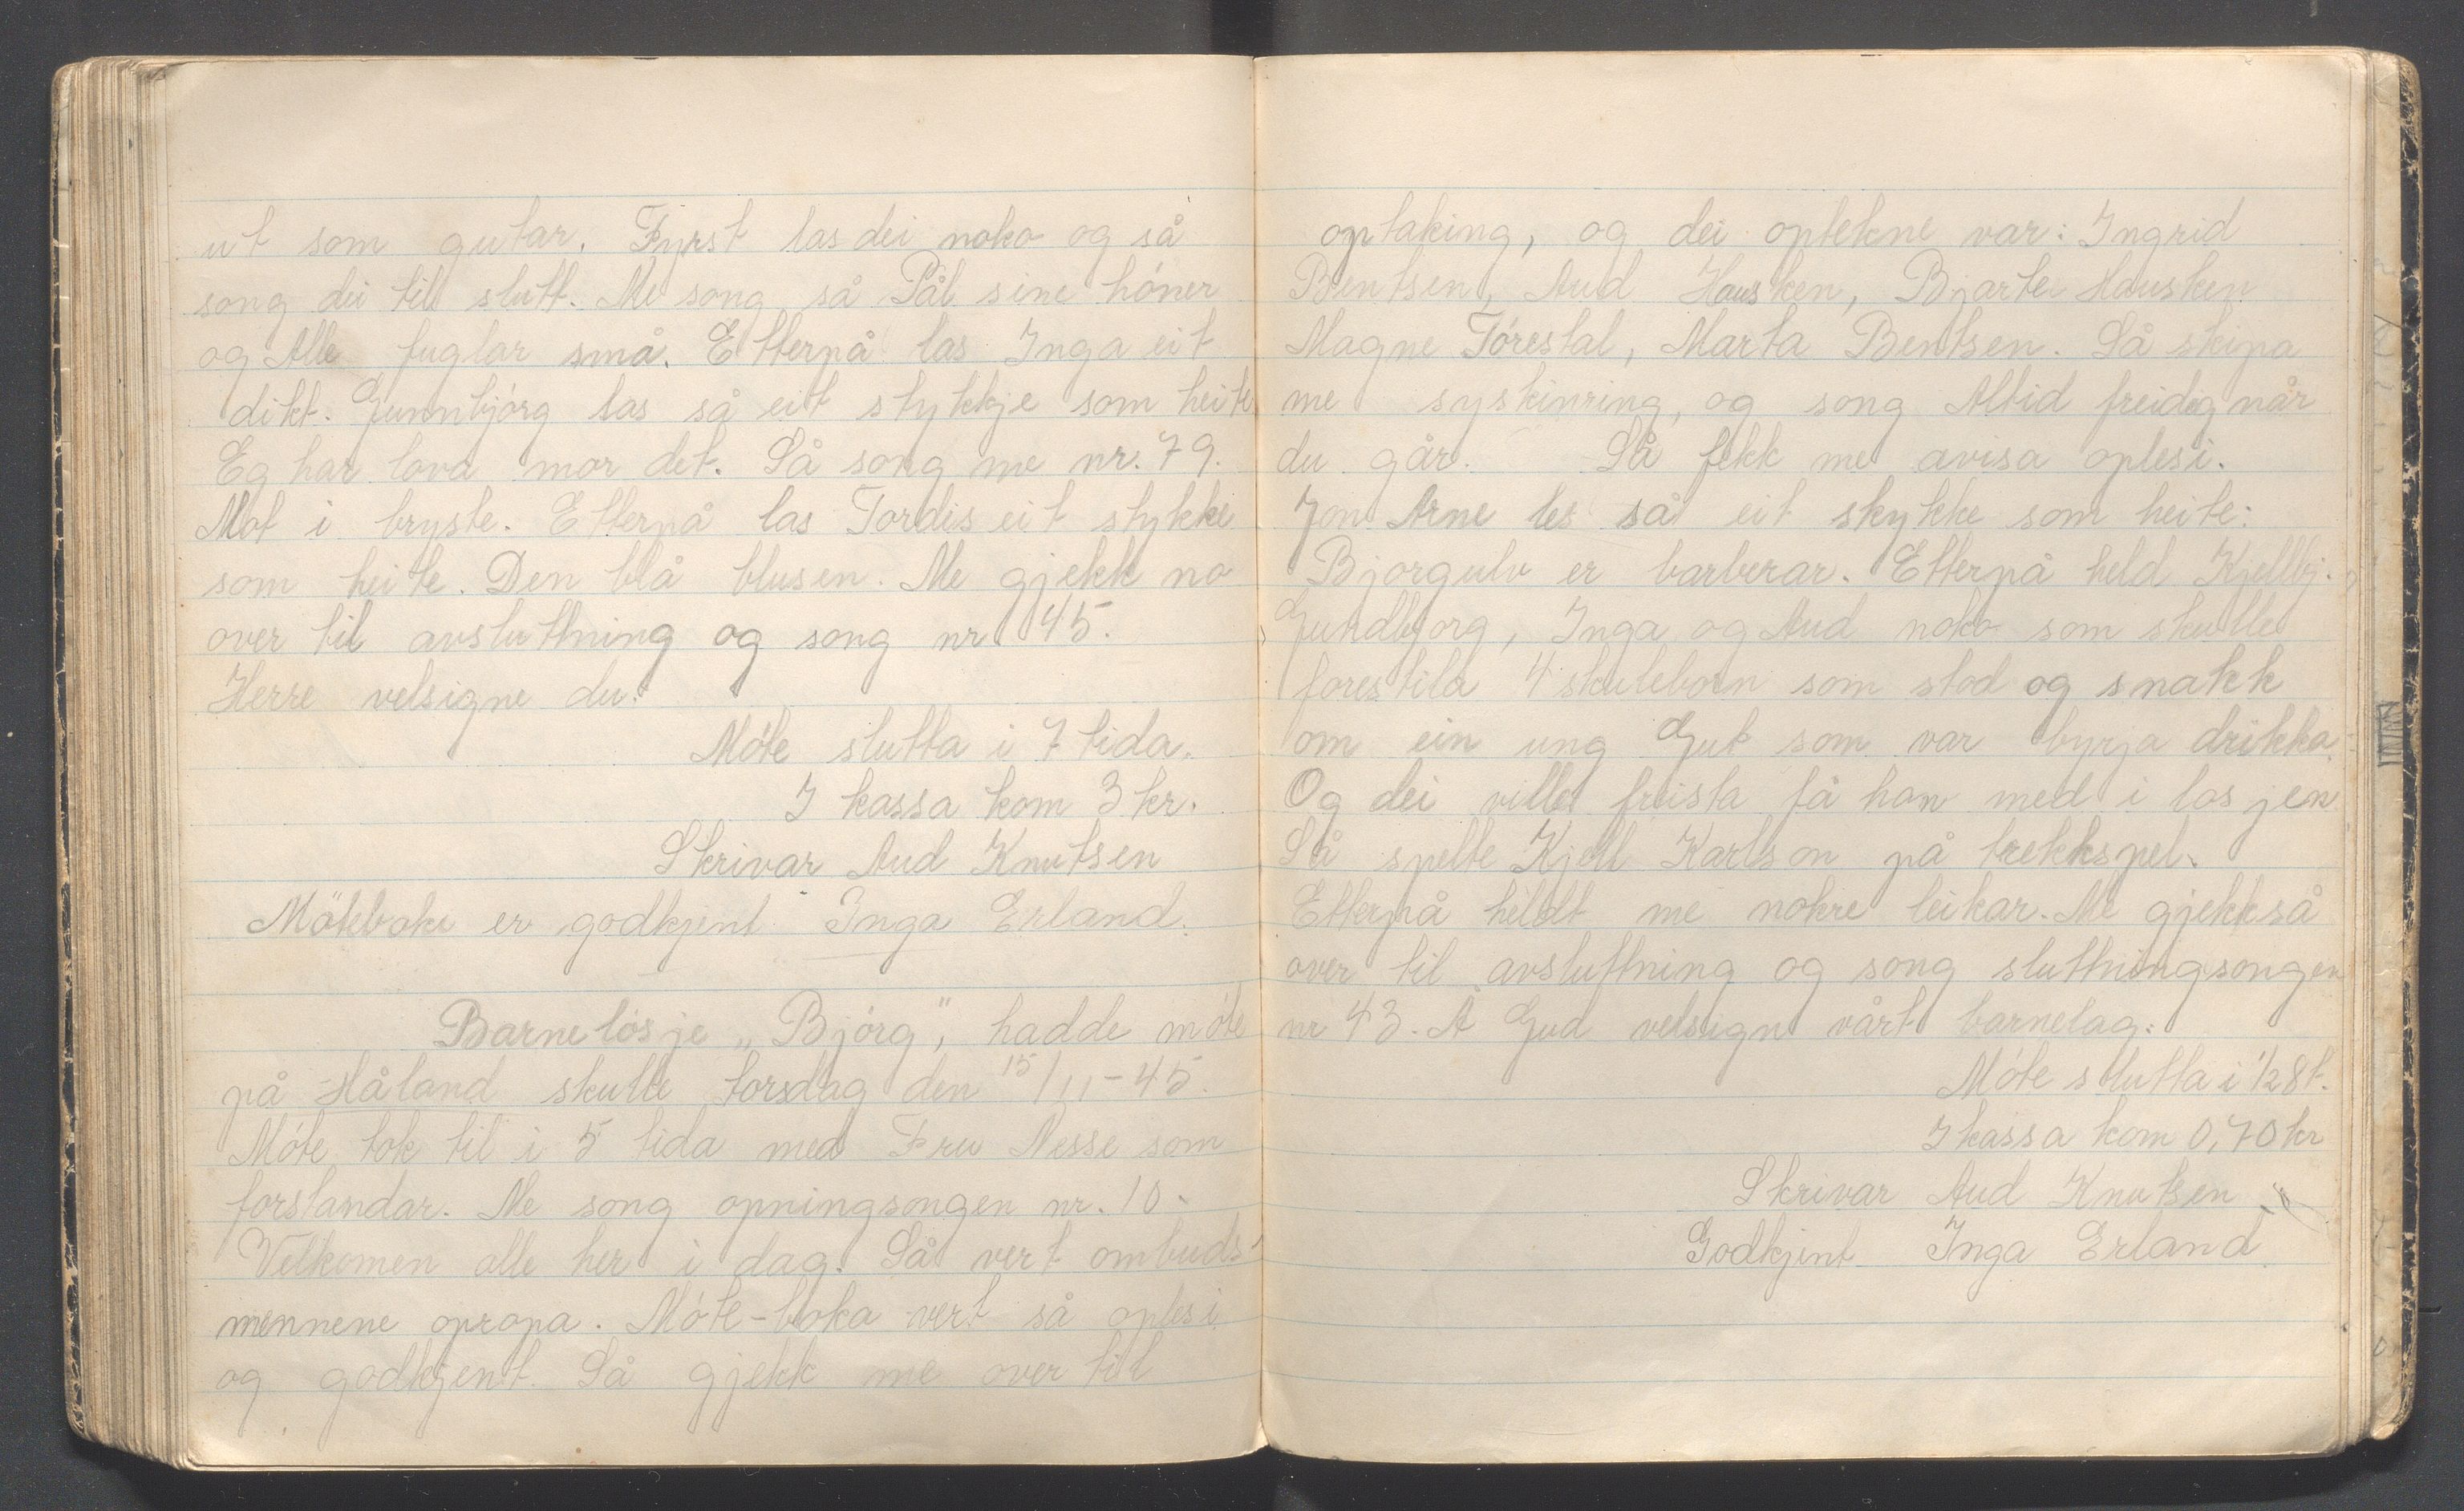 ut som gutar. Fyrst las dei noko og så
song dei til slutt. Me song så Pål sine höner
og Alle fuglar små. Etterpå las Inga eit
dikt. Gunnbjórg las så eit stykkje som heite
Eg har lova mor det. Så song me nr. 79.
Mot i bryste. Etterpå las Tordis eit stykke
som heite. Den blå blusen. Me gjekk no
over til avsluttning og song nr 45.
Herre velsigne du.
Móte slutta i 7 tida.
I kassa kom 3 kr.
Skrivar Aud Knutsen
Möteboka er godkjent Inga Erland.
Barnelósje „Bjórg", hadde móte
på Håland skulle torsdag den 15/11-45.
Móte tok til i 5 tida med Fru Nesse som
forstandar. Me song opningsongen nr. 10.
Velkomen alle her i dag. Så vert ombuds-
mennene opropa. Móte-boka vert så oplesi
og godkjent. Så gjekk me over til
optaking, og dei optekne var: Ingrid
Bentsen, Aud Hausken, Bjarte Hausken
Magne Tórestal, Marta Bentsen. Så skipa
me syskinring, og song Altid freidig når
du går. Så fekk me avisa oplesi.
Jon Arne les så eit skykke som heite:
Bjorgulv er barberar. Etterpå held Kjellbj.,
Gundbjorg, Inga og Aud noko som skulle
forestila 4 skuleborn som stod og snakk
om ein ung Gut som var byrja drikka.
Og dei ville freista få han med i losjen
Så spelte Kjell Karlson på trekkspel.
Etterpå heldt me nokre leikar. Me gjekk så
over til avsluttning og song sluttningsongen
nr 43. Å Gud velsign vårt barnelag.
Móte slutta i 1/2 8 t.
I kassa kom 0,70 kr
Skrivar Aud Knutsen
Godkjent Inga Erland